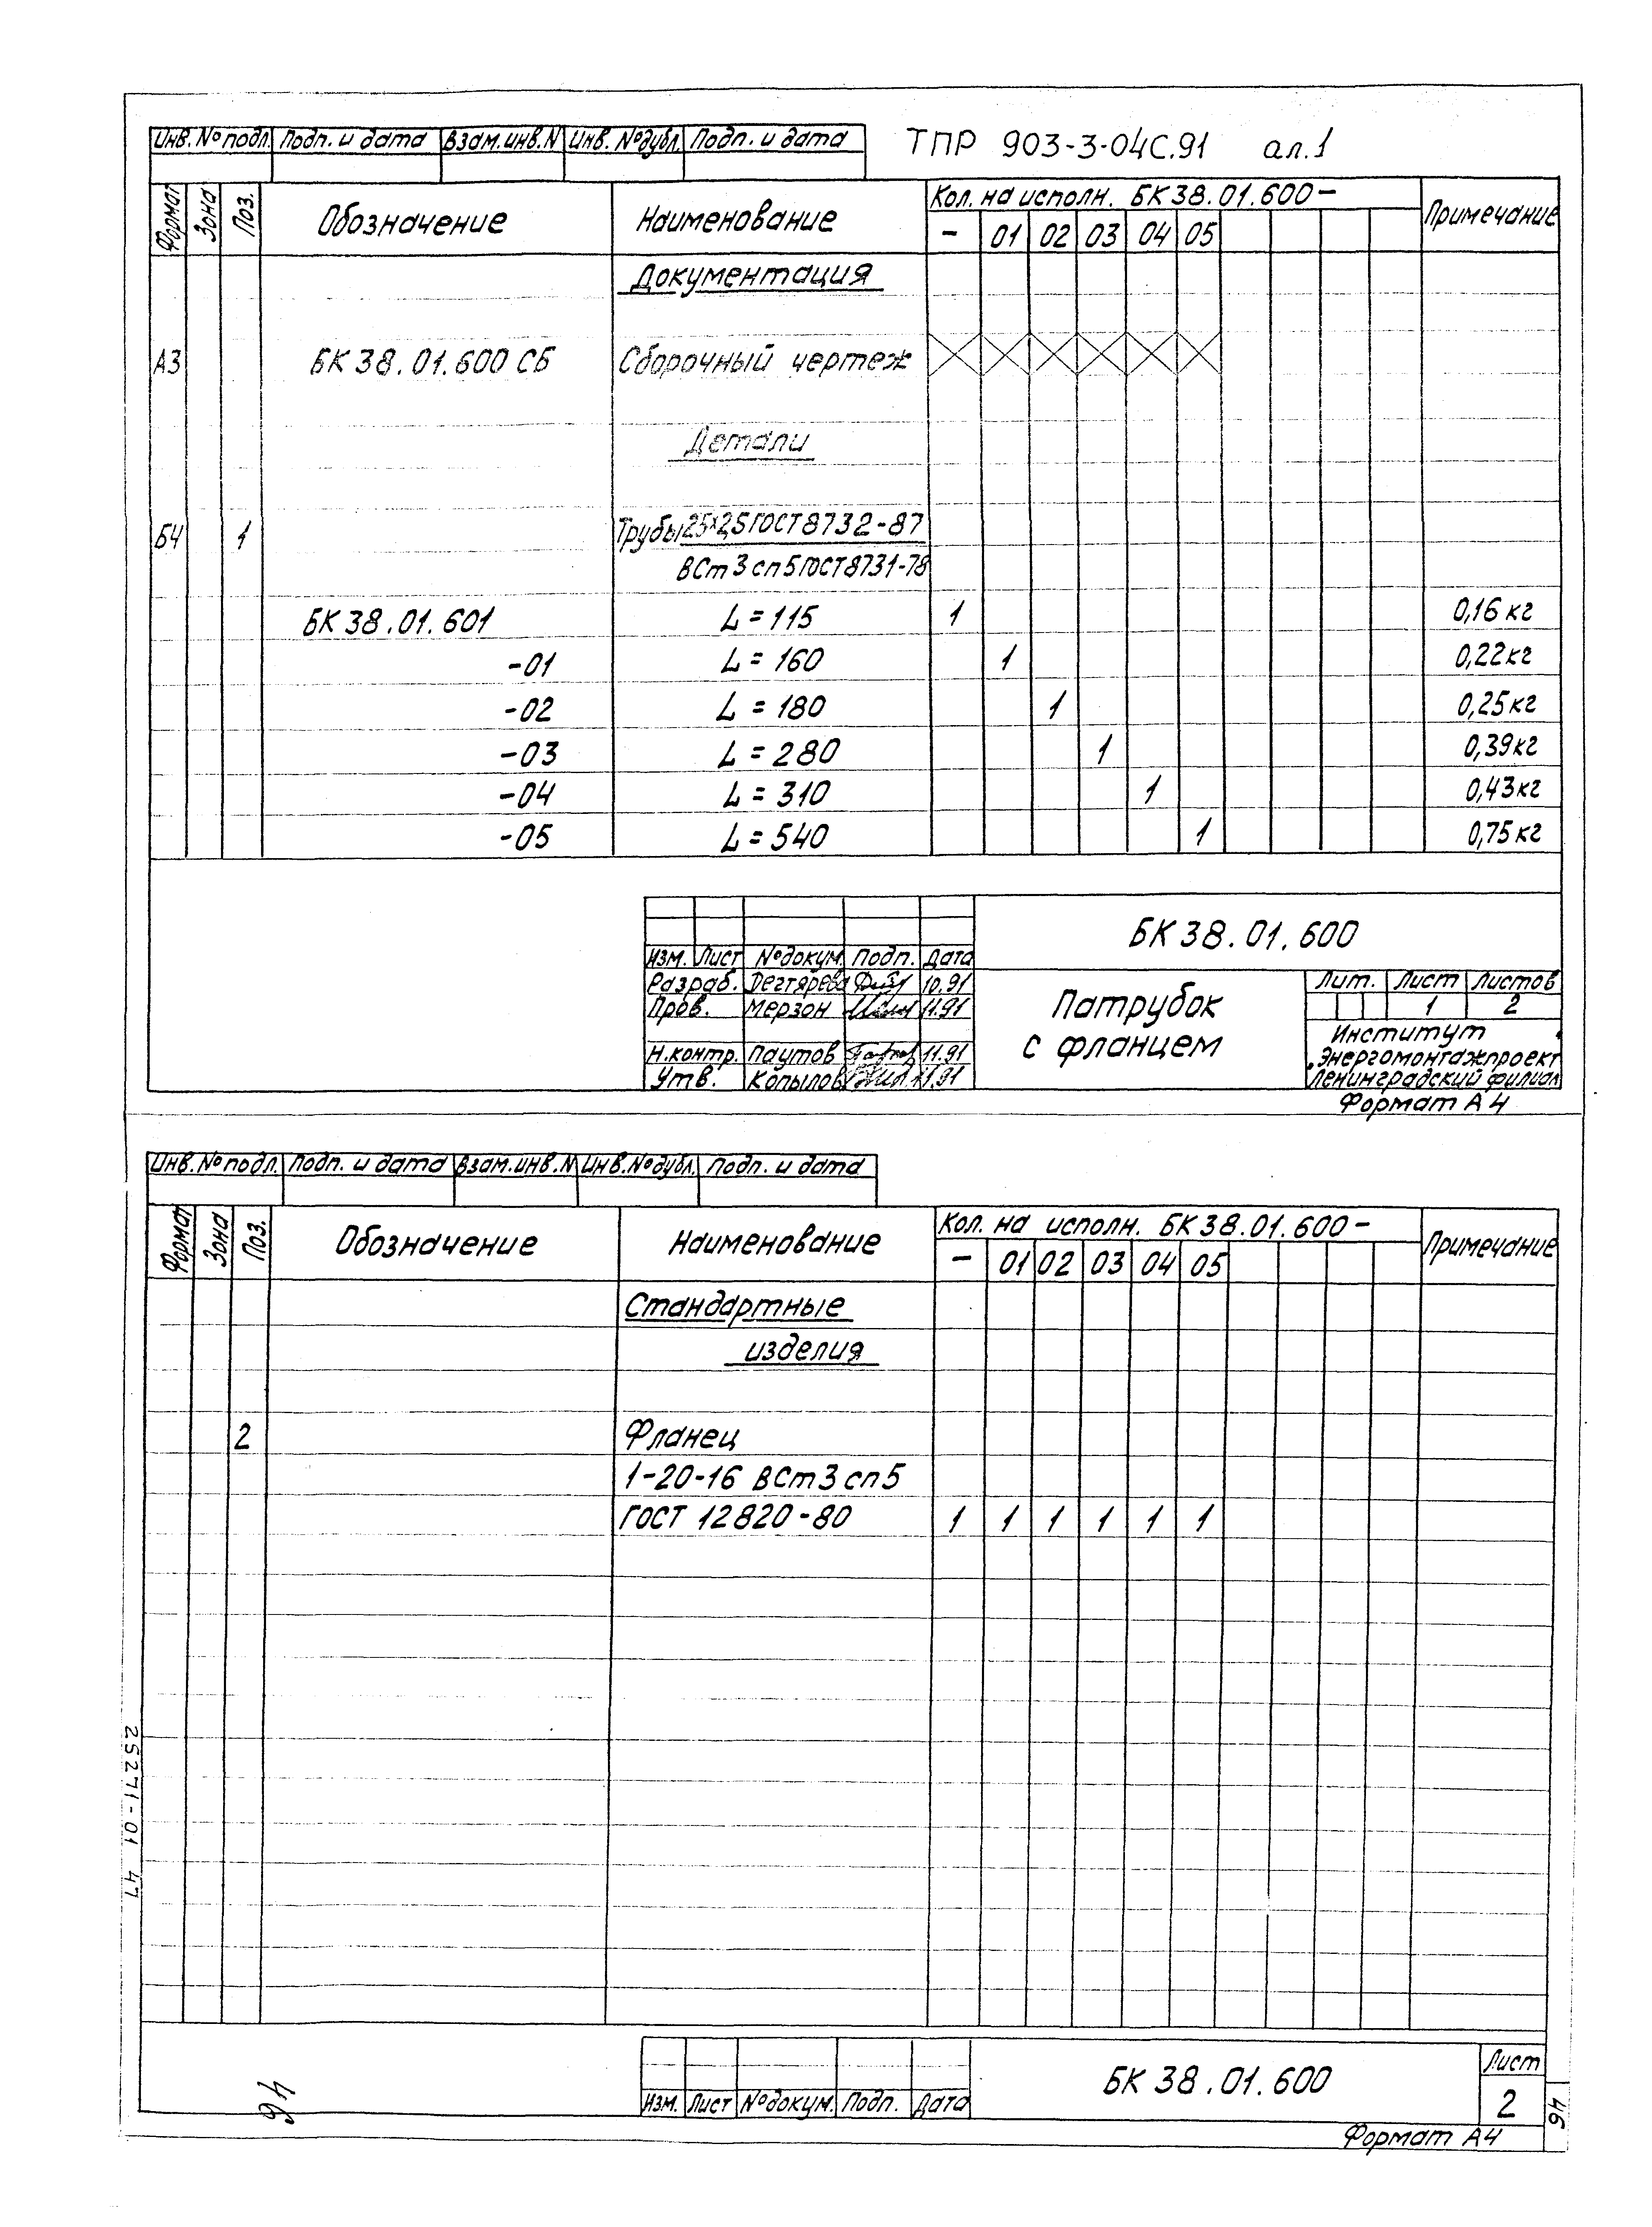 Инв. № подл. Подп. и дата Взам. инв. N Инв. № дубл. Подп. и дата ТПР 903-3-04С.91 ал.1
Формат Зона Поз. Обозначение Наименование Кол. на исполн. БК 38.01.600- Примечание
- 01 02 03 04 05
Документация
А3 БК 38.01.600 СБ Сборочный чертеж
Детали
БЧ 1 Трубы 25х2,5 ГОСТ 8732-87
ВСт 3 сп 5 ГОСТ 8731-78
БК 38.01.601 L = 115 1 0,16 кг
-01 L = 160 1 0,22 кг
-02 L = 180 1 0,25 кг
-03 L = 280 1 0,39 кг
-04 L = 310 1 0,43 кг
-05 L = 540 1 0,75 кг
БК 38.01.600
Изм. Лист № докум. Подп. Дата
Разраб. Дегтярева 10.91
Пров. Мерзон 11.91
Н.контр. Паутов 11.91
Утв. Копылов 11.91
Патрубок
с фланцем
Лит. Лист Листов
1 2
Институт
"Энергомонтажпроект"
Ленинградский филиал
Формат А4
Инв. № подл. Подп. и дата Взам. инв. N Инв. № дубл. Подп. и дата
Формат Зона Поз. Обозначение Наименование Кол. на исполн. БК 38.01.600- Примечание
- 01 02 03 04 05
Стандартные
изделия
2 Фланец
1-20-16 ВСт 3 сп 5
ГОСТ 12820-80 1 1 1 1 1 1
25271-01 47
46
Изм. Лист № докум. Подп. Дата
БК 38.01.600
Лист
2
46
Формат А4